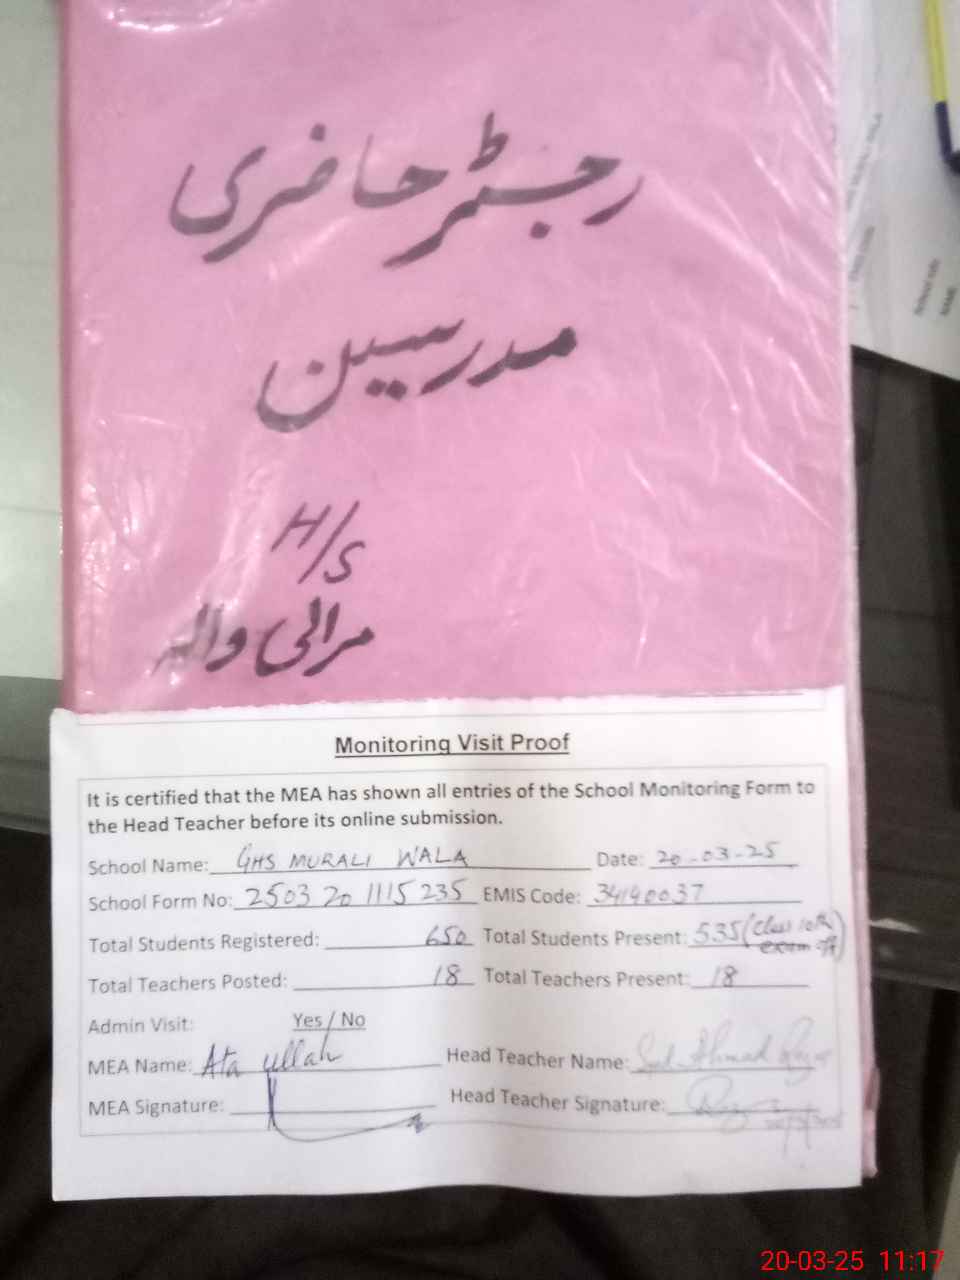 رجسٹر حاضری
مدرسین
H/S
مرالی والہ
Monitoring Visit Proof
It is certified that the MEA has shown all entries of the School Monitoring Form to
the Head Teacher before its online submission.
School Name: GHS MURALI WALA Date: 20-03-25
School Form No: 2503 20 1115 235 EMIS Code: 34190037
Total Students Registered: 650 Total Students Present: 535 (Class 10th
exam off)
Total Teachers Posted: 18 Total Teachers Present: 18
Admin Visit: Yes / No
MEA Name: Ata ullah Head Teacher Name: Ahmad
MEA Signature: Head Teacher Signature:
20-03-25 11:17